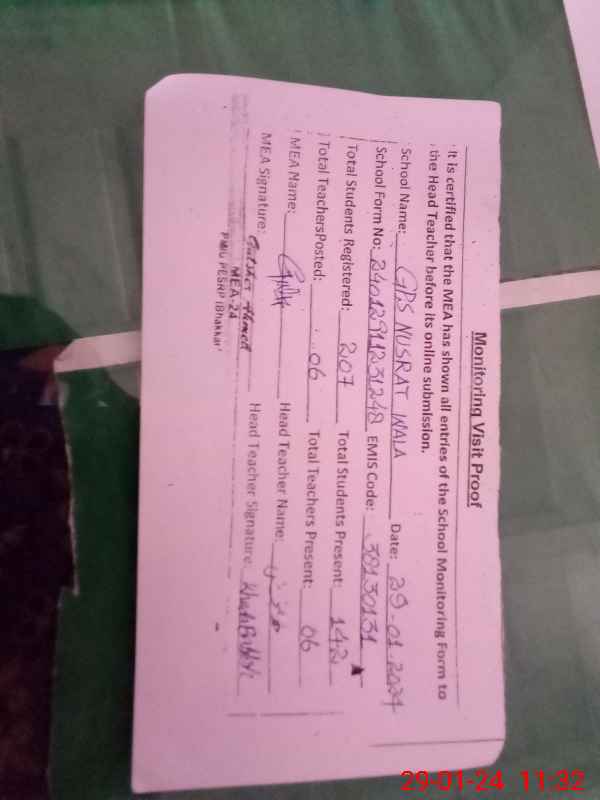 Monitoring Visit Proof
It is certified that the MEA has shown all entries of the School Monitoring Form to
the Head Teacher before its online submission.
School Name: GPS NUSRAT WALA Date: 29.01.2024
School Form No: 24012911231248 EMIS Code: 38130131
Total Students Registered: 207 Total Students Present: 142
Total TeachersPosted: 06 Total Teachers Present: 06
MEA Name: Head Teacher Name:
MEA Signature: Ahmed Head Teacher Signature
MEA-24
PMU PESRP (Bhakkar)
29-01-24 11:32